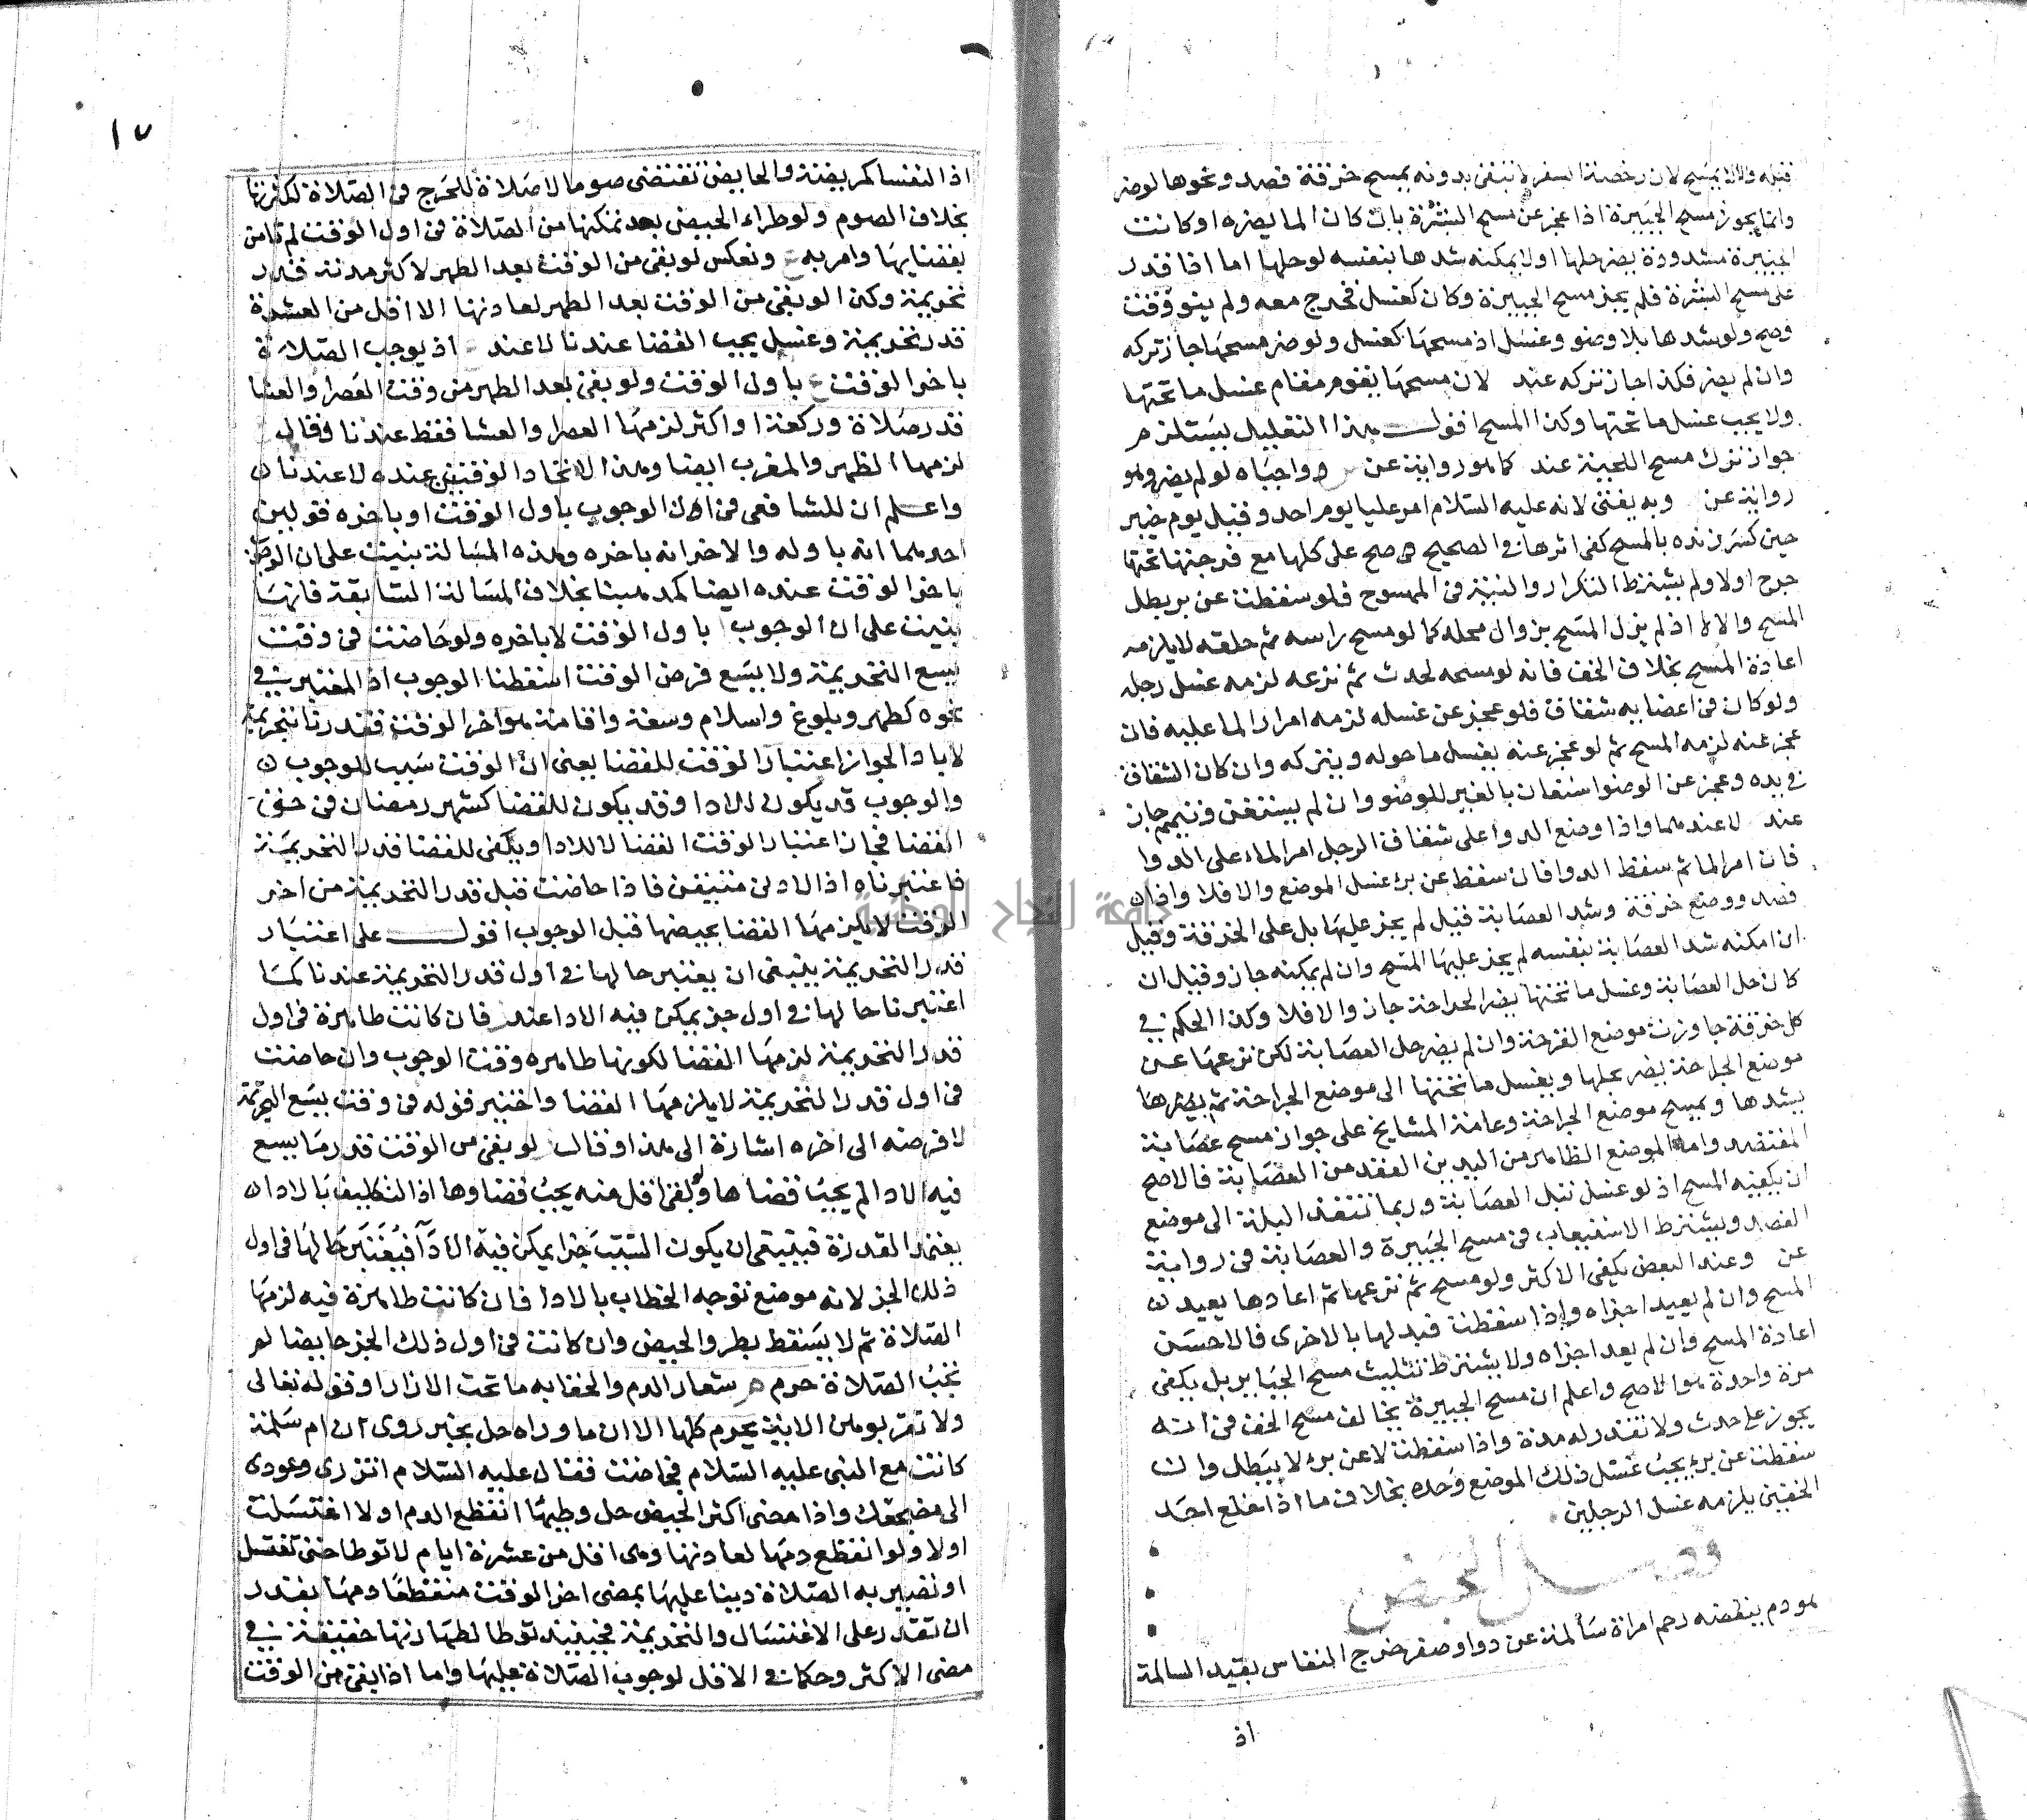 قبله والا لا يمسح لان رخصة السفر لا تبقى بدونه يمسح خرقة فصد ونحوها لوضر
وانما يجوز مسح الجبيرة اذا عجز عن مسح البشرة بان كان الما يضره او كانت
الجبيرة مشدودة يضر حلها او لا يمكنه شدها بنفسه لو حلها اما اذا قدر
على مسح البشرة فلم يجز مسح الجبيرة وكان كغسل فخرج معه ولم يتوقت
وصح ولو شدها بلا وضو وغسل اذ مسحها كغسل ولو ضر مسحها جاز تركه
وان لم يضر فكذا جاز تركه عند لان مسحها يقوم مقام غسل ما تحتها
ولا يجب غسل ما تحتها وكذا المسح اقول هذا التعليل يستلزم
جواز ترك مسح اللحية عند كما هو رواية عن وواجباه لو لم يضر وهو
رواية عن وبه يفتى لانه عليه السلام امر عليا يوم احد وقيل يوم خيبر
حين كسر زنده بالمسح كفى اثرها في الصحيح صح على كلها مع فرجتها تحتها
جرح اولا ولم يشترط التكرار والنية في الممسوح فلو سقطت عن بر بطل
المسح والا لا اذ لم يزل المسح بزوال محله كما لو مسح راسه ثم حلقه لا يلزمه
اعادة المسح بخلاف الخف فانه لو مسحه لحدث ثم نزعه لزمه غسل رجله
ولو كان في اعضايه شقاق فلو عجز عن غسله لزمه امرار الما عليه فان
عجز عنه لزمه المسح ثم لو عجز عنه يغسل ما حوله ويتركه وان كان الشقاق
في يده وعجز عن الوضو استعان بالغير للوضو وان لم يستعن وتيمم جاز
عند لا عندهما واذا وضع الدوا على شقاق الرجل امر الماء على الدوا
فان امر الما ثم سقط الدوا فان سقط عن برء غسل الموضع والا فلا واذا
فصد ووضع خرقة وشد العصابة قيل لم يجز عليها بل على الخرقة وقيل
ان امكنه شد العصابة بنفسه لم يجز عليها المسح وان لم يمكنه جاز وقيل ان
كان حل العصابة وغسل ما تحتها يضر الجراحة جاز والا فلا وكذا الحكم في
كل خرقة جاوزت موضع القرحة وان لم يضر حل العصابة لكن نزعها عن
موضع الجراحة يضر يحلها ويغسل ما تحتها الى موضع الجراحة ثم
يشدها ويمسح موضع الجراحة وعامة المشايخ على جواز مسح عصابة
المفتصد واما الموضع الظاهر من اليد بين العقد من العصابة فالاصح
ان يكفيه المسح اذ لو غسل تبل العصابة وربما تنفذ البلة الى موضع
الفصد ويشترط الاستيعاب في مسح الجبيرة والعصابة في رواية
عن وعند البعض يكفي الاكثر ولو مسح ثم نزعها ثم اعادها يعيد
المسح وان لم يعيد اجزاه واذا سقطت فبدلها بالاخرى فالاحسن
اعادة المسح وان لم يعد اجزاه ولا يشترط تثليث مسح الجبايربل يكفى
مرة واحدة هوالاصح واعلم ان مسح الجبيرة يخالف مسح الخف في انه
يجوز على حدث ولا تقدر له مدة واذا سقطت لا عن برء لا يبطل وان
سقطت عن برء يجب غسل ذلك الموضع وحده بخلاف ما اذا خلع احد
الخفين يلزمه غسل الرجلين
فصل الحيض
هو دم ينفضه رحم امراة سالمة عن دا وصغر خرج النفاس بقيد السالمة
اذ
١٧
اذ النفسا كمريضة والحايض تقتضى صوما لا صلاة للحرج في الصلاة لكثرتها
بخلاف الصوم ولو طراء الحيض بعد تمكنها من الصلاة في اول الوقت لم نامر
بقضايها وامر به ونعكس لو بقى من الوقت بعد الطهر لاكثر مدته قدر
تحريمة وكذا لو بقى من الوقت بعد الطهر لعادتها الا اقل من العشرة
قدر تحريمة وغسل يجب القضا عندنا لا عند اذ يوجب الصلاة
باخر الوقت باول الوقت ولو بقى بعد الطهر من وقت العصر او العشا
قدر صلاة وركعة او اكثر لزمها العصر والعشا فقط عندنا وقال
لزمها الظهر والمغرب ايضا وهذا لاتحاد الوقتين عنده لا عندنا
واعلم ان للشافعى في ان الوجوب باول الوقت او باخره قولين
احدهما انه باوله والاخر انه باخره وهذه المسالة بنيت على ان الوجوب
باخر الوقت عنده ايضا كمذهبنا بخلاف المسالة السابقة فانها
بنيت على ان الوجوب باول الوقت لا باخره ولو حاضت في وقت
يسع التحريمة ولا يسع فرض الوقت اسقطنا الوجوب اذ المعتبر في
نحوه كطهر وبلوغ واسلام وسفر واقامة هو اخر الوقت فقدرنا بتحريمة
لا باداء لجواز اعتبار الوقت للقضا يعنى ان الوقت سبب للوجوب
والوجوب قد يكون للادا وقد يكون للقضا كشهر رمضان في حق
القضا فجاز اعتبار الوقت القضا لا للادا ويكفى للقضا قدر التحريمة
فاعتبرناه اذ الادنى متيقن فاذا حاضت قبل قدر التحريمة من اخر
الوقت لا يلزمها القضا بحيضها قبل الوجوب اقول على اعتبار
قدر التحريمة ينبغى ان يعتبر حالها في اول قدر التحريمة عندنا كما
اعتبرنا حالها في اول جز يمكن فيه الادا عند فان كانت طاهرة في اول
قدر التحريمة لزمها القضا لكونها طاهره وقت الوجوب وان حاضت
في اول قدر التحريمة لا يلزمها القضا واختير قوله في وقت يسع التحريمة
لا فرضه الى اخره اشارة الى هذا وقال لو بقى من الوقت قدر ما يسع
فيه الادا لم يجب قضاها ولو بقى اقل منه يجب قضاوها اذ التكليف بالادا
يعتمد القدرة فينبغى ان يكون السبب جزا يمكن فيه الادا فيعتبر حالها في اول
ذلك الجز لانه موضع توجه الخطاب بالادا فان كانت طاهرة فيه لزمها
الصلاة ثم لا يسقط بطرو الحيض وان كانت في اول ذلك الجز حايضا لم
تجب الصلاة حرم شعار الدم والحقا به ما تحت الازار وقوله تعالى
ولا تقربوهن الاية يحرم كلها الا ان ما وراه حل بخبر روى ان ام سلمة
كانت مع النبى عليه السلام فحاضت فقال عليه السلام اتزرى وعودى
الى مضجعك واذا مضى اكثر الحيض حل وطيها انقطع الدم اولا اغتسلت
اولا ولو انقطع دمها لعادتها وهى اقل من عشرة ايام لا توطا حتى تغتسل
او تصير به الصلاة دينا عليها بمضى اخر الوقت منقطعا دمها بقدر
ان تقدر على الاغتسال والتحريمة فحينيذ توطا لطهارتها حقيقة في
مضى الاكثر وحكما في الاقل لوجوب الصلاة عليها واما اذا بقى من الوقت
جامعة النجاح الوطنية